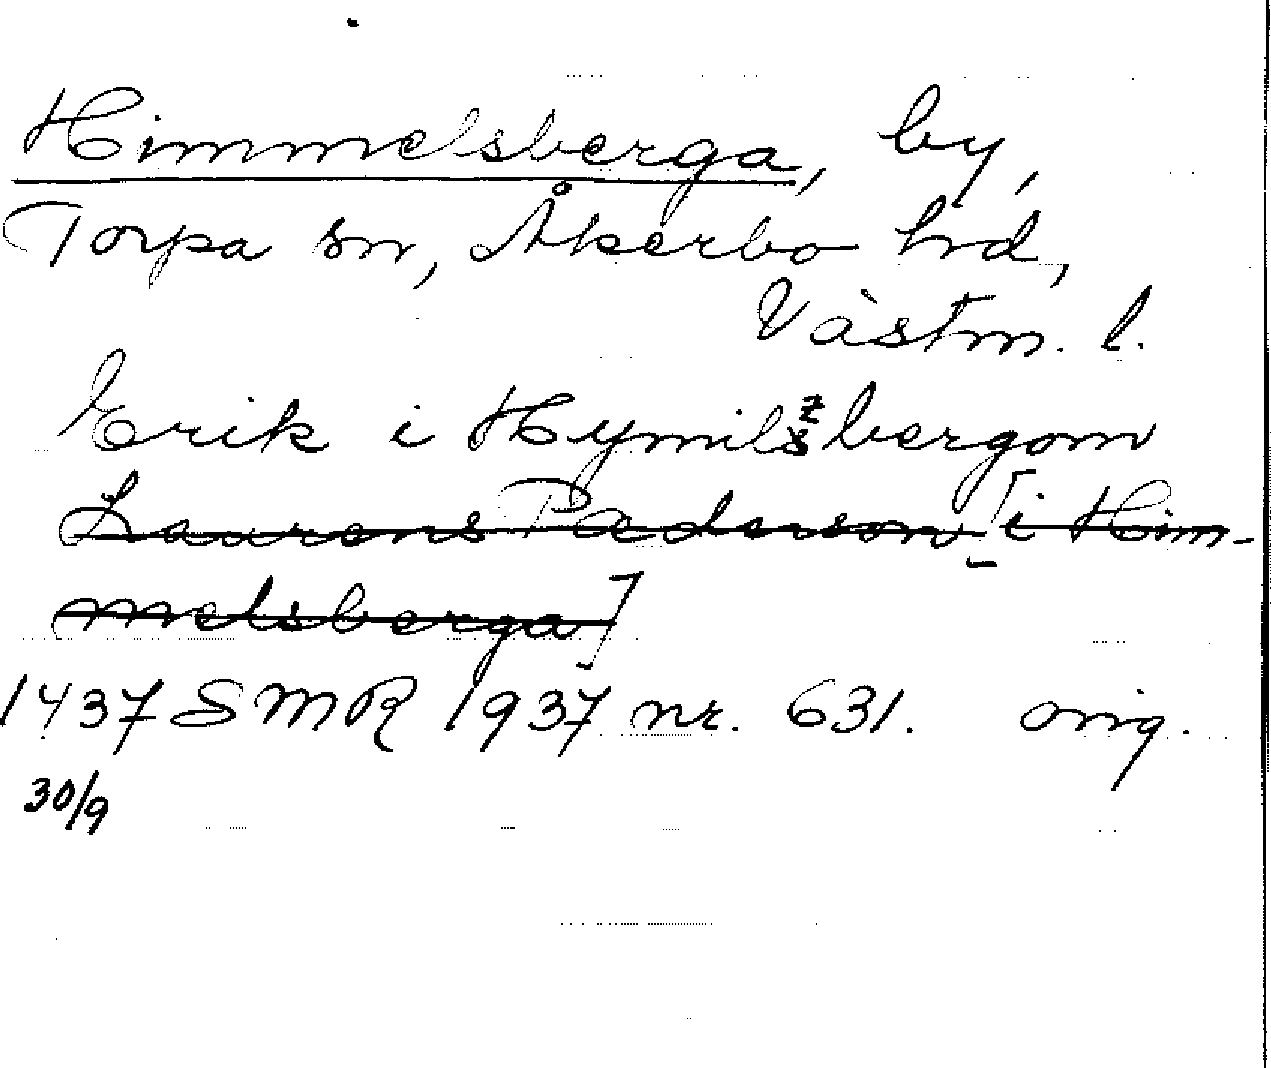 Himmelsberga, by,
Torpa sn, Åkerbo hrd,
Västm. l.
Erik i Hymilzbergom
Laurens Pædersson [i Him-
melsberga]
1437 SMR 1937 nr. 631. orig.
30/9